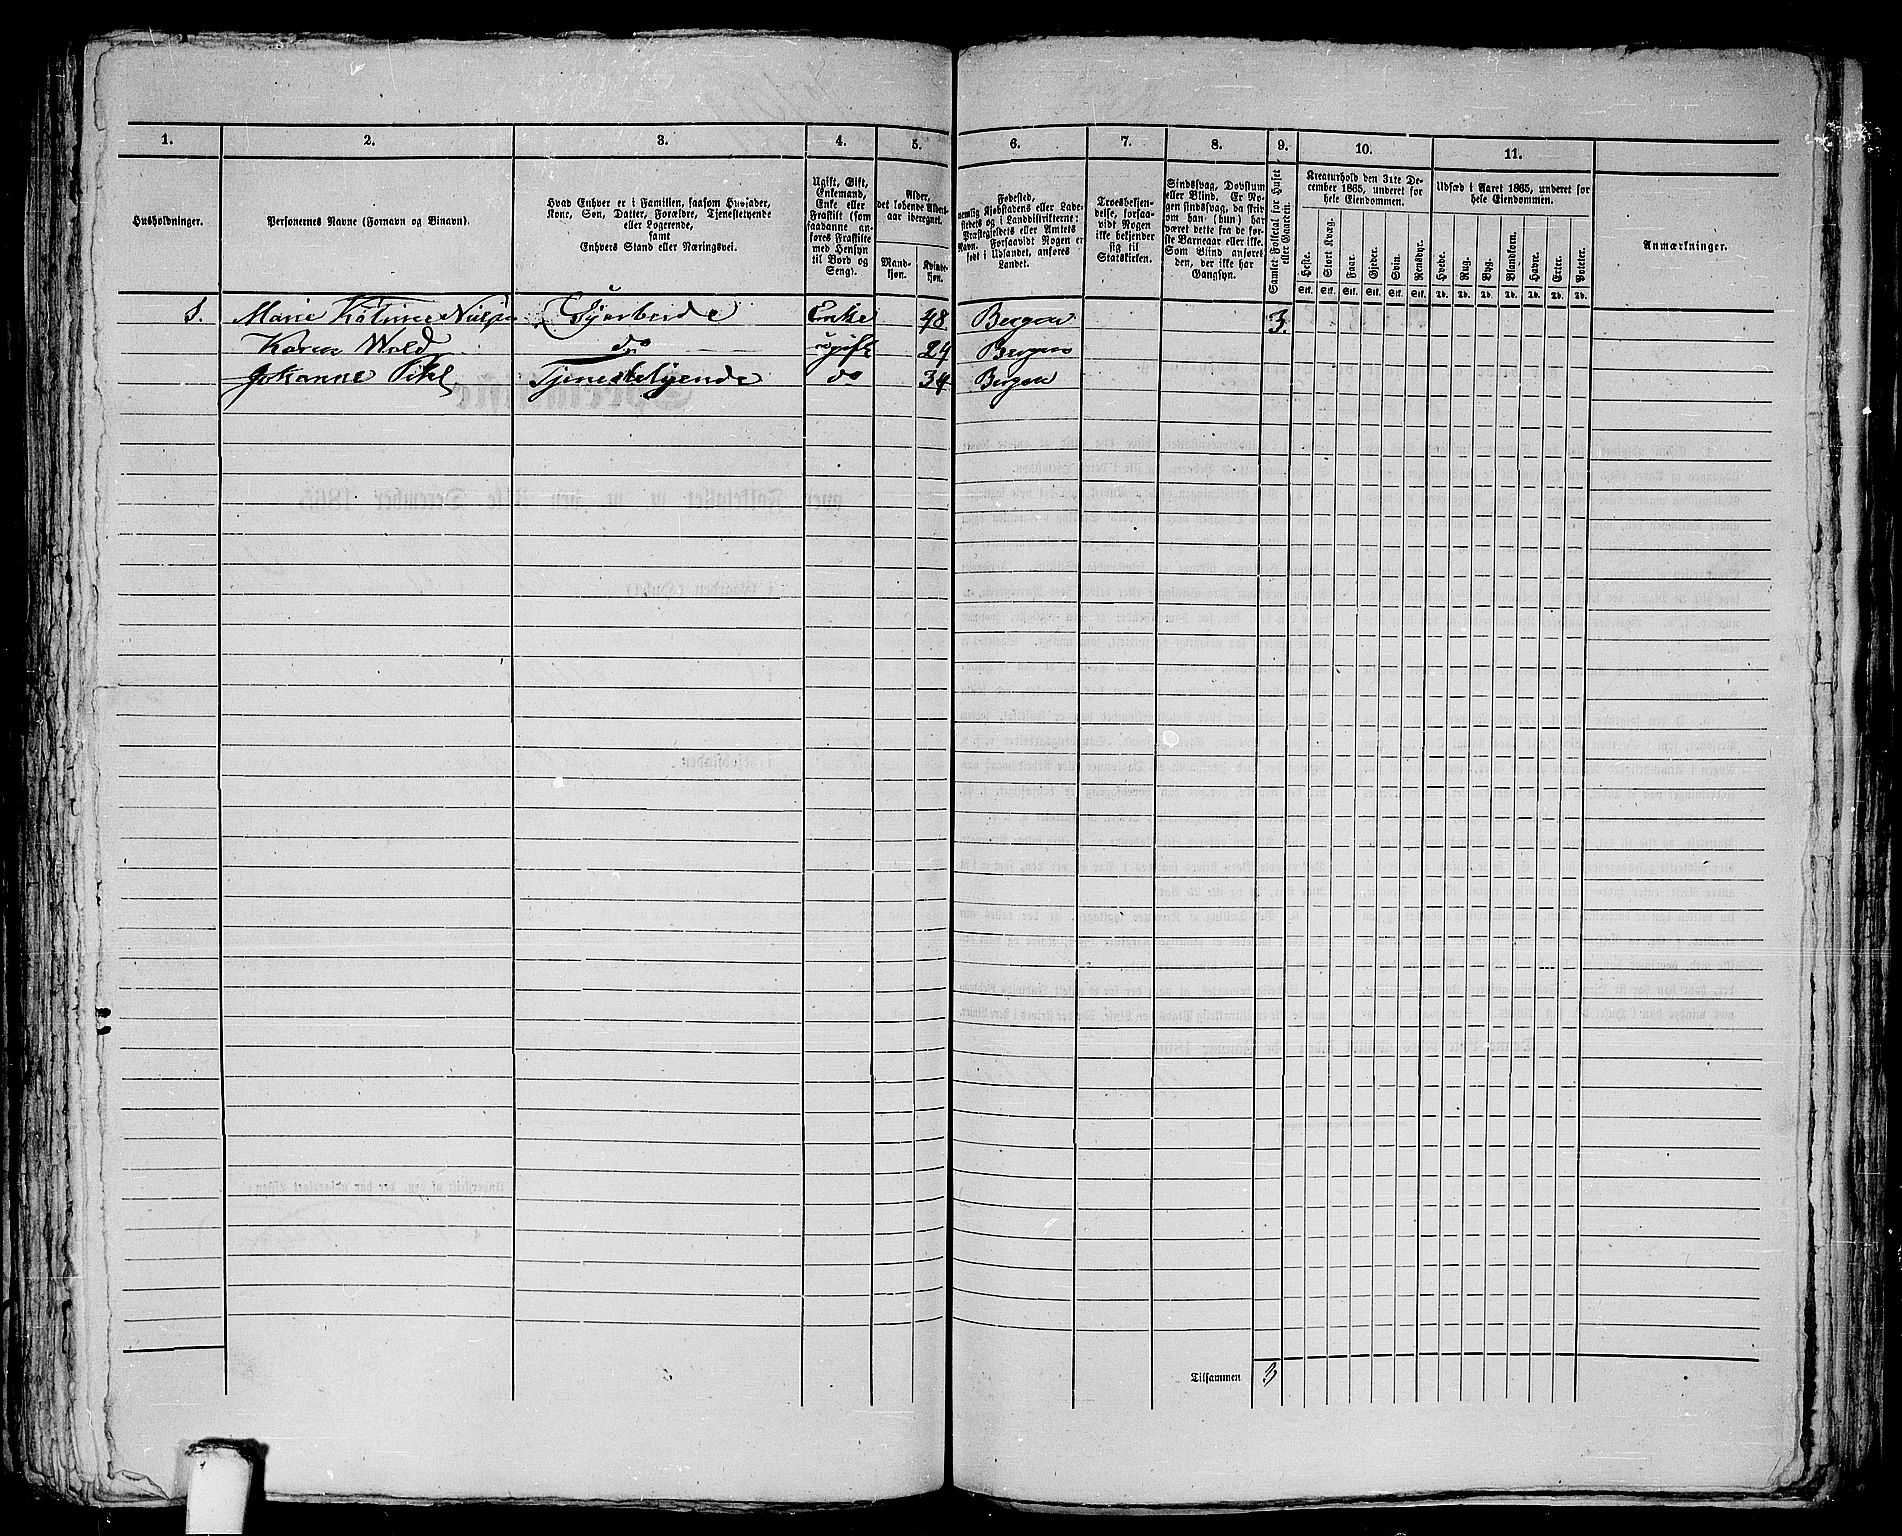 1. 2. 3. 4. 5. 6. 7. 8. 9. 10. 11.
Husholdninger.
Personernes Navne (Fornavn og Binavn).
Hvad Enhver er i Familien, saasom Husfader,
Kone, Søn, Datter, Forældre, Tjenestetyende
eller Logerende,
samt
Enhvers Stand eller Næringsvei.
Ugift, Gift,
Enkemand,
Enke eller
Fraskilt (som
saadanne an-
føres Fraskilte
med Hensyn
til Bord og
Seng).
Alder,
det løbende Alders-
aar iberegnet.
Mand-
kjøn.
Kvinde-
kjøn.
Fødested,
nemlig Kjøbstadens eller Lade-
stedets og i Landdistrikterne:
Præstegjeldets eller Amtets
Navn. Forsaavidt Nogen er
født i Udlandet, anføres
Landet.
Troesbekjen-
delse, forsaa-
vidt Nogen
ikke bekjender
sig til
Statskirken.
Sindssvag, Døvstum
eller Blind. Er No-
gen sindssvag, da skriv
om han (hun) har
været dette fra de før-
ste Barneaar eller ikke.
Som Blind anføres
den, der ikke har
Gangsyn.
Samlet Folketal for Huset
eller Gaarden.
Kreaturhold den 31te De-
cember 1865, underet for
hele Eiendommen.
Heste. Stort Kvæg. Faar. Gjeder. Svin. Rensdyr.
Stk. Stk. Stk. Stk. Stk. Stk.
Udsæd i Aaret 1865, underet for
hele Eiendommen.
Hvede. Rug. Byg. Blandkorn. Havre. Erter. Poteter.
Td. Td. Td. Td. Td. Td. Td.
Anmærkninger.
1. Marie Enke 48 Bergen 3.
Karen Wold do ugift 24 Bergen
Johanne Tjenestetyende do 34 Bergen
Tilsammen 3